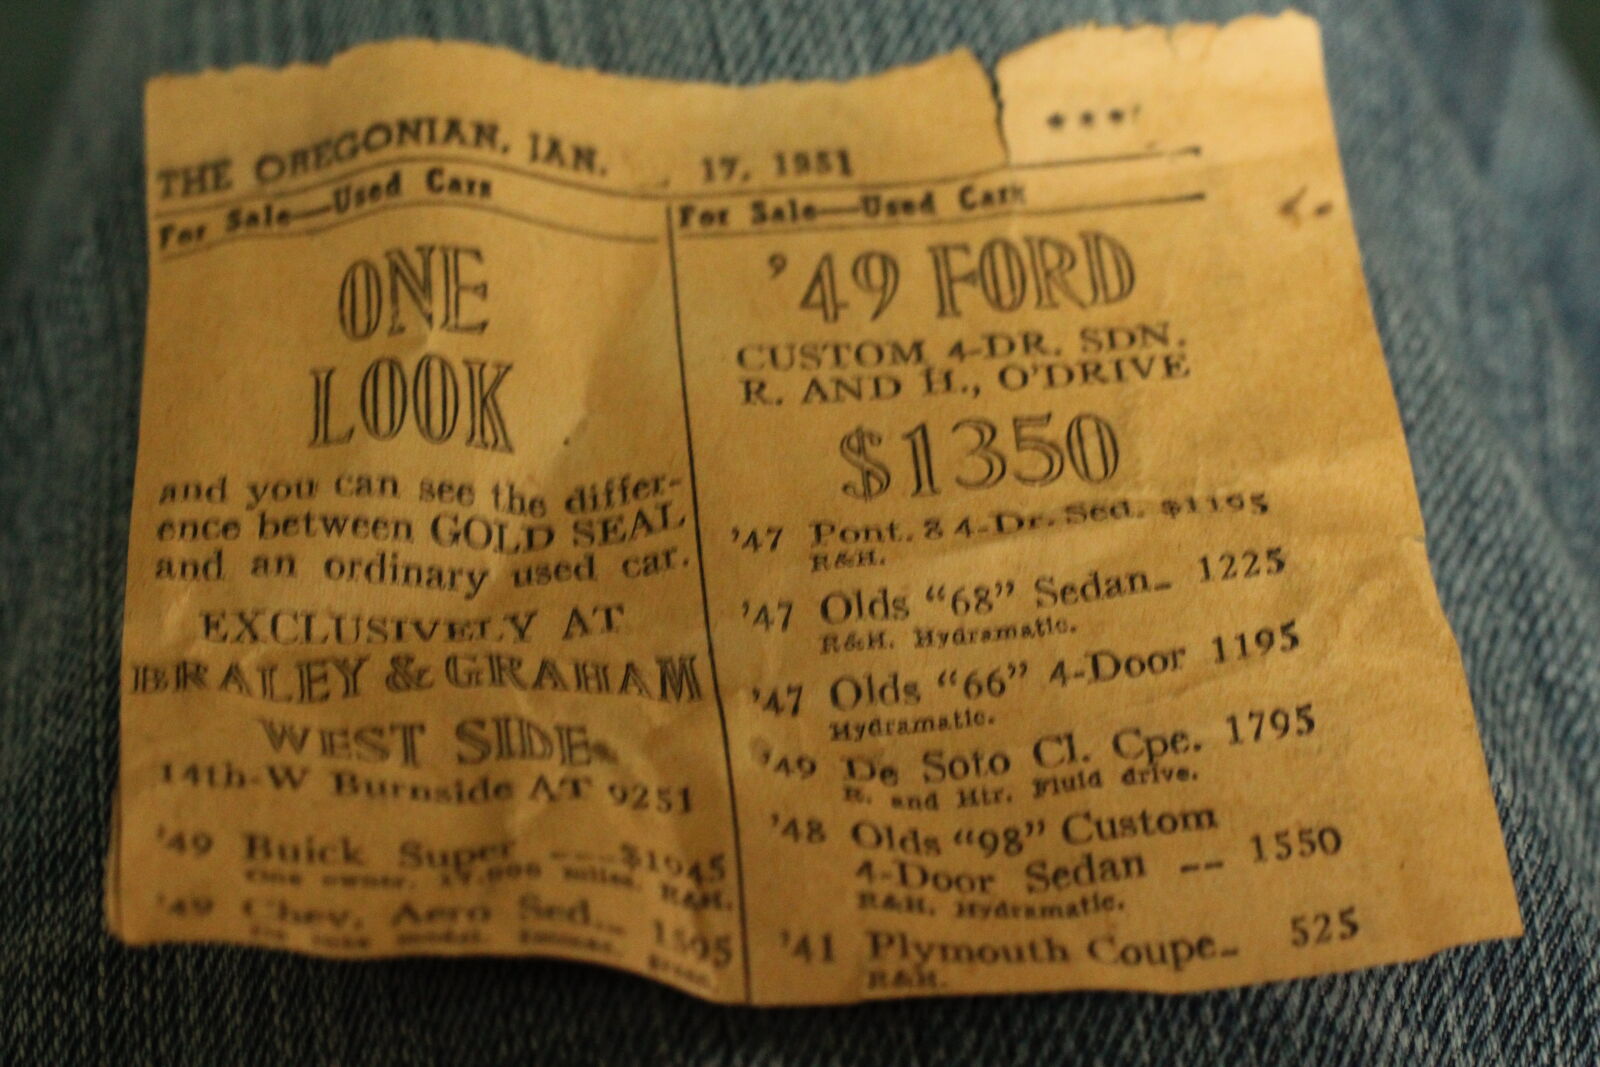 THE OREGONIAN, JAN. 17, 1951
* * *
For Sale—Used Cars
ONE
LOOK
and you can see the differ-
ence between GOLD SEAL
and an ordinary used car.
EXCLUSIVELY AT
BRALEY & GRAHAM
WEST SIDE
14th-W Burnside AT 9251
'49 Buick Super ---$1945
One owner. 17,000 miles. R&H.
'49 Chev. Aero Sed.-- 1595
For Sale—Used Cars
'49 FORD
CUSTOM 4-DR. SDN.
R. AND H., O'DRIVE
$1350
'47 Pont. 8 4-Dr. Sed. $1195
R&H.
'47 Olds “68” Sedan- 1225
R&H. Hydramatic.
'47 Olds “66” 4-Door 1195
Hydramatic.
'49 De Soto Cl. Cpe. 1795
R. and Htr. Fluid drive.
'48 Olds “98” Custom
4-Door Sedan -- 1550
R&H. Hydramatic.
'41 Plymouth Coupe- 525
R&H.